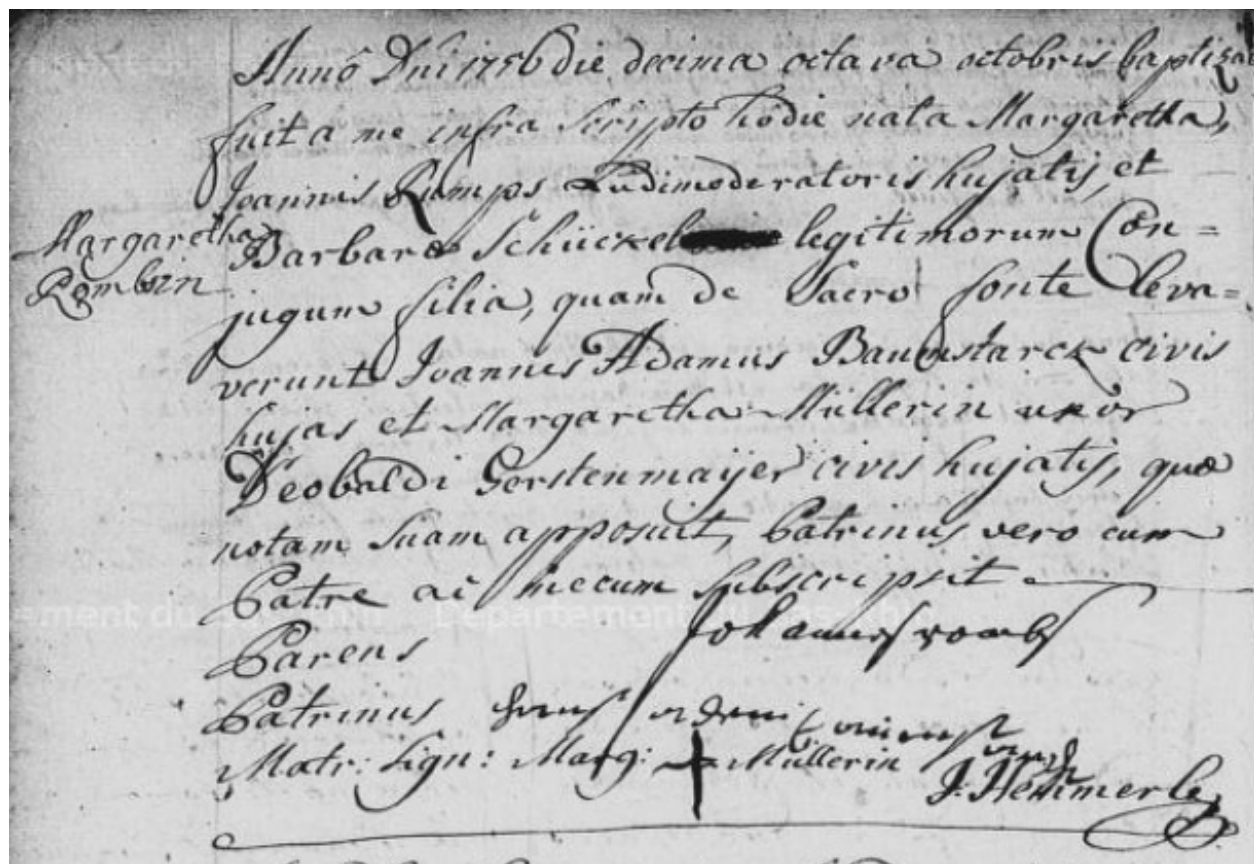 Anno Dni 1756 die decima octava octobris baptizat
fuit a me infra scripto hodie nata Margaretha,
Joannis Rumps Ludimoderatoris hujatis, et
Barbaræ Schückel legitimorum Con=
jugum filia, quam de Sacro fonte leva=
verunt Joannes Adamus Baumstarck civis
hujas et Margaretha Müllerin uxor
Deobaldi Gerstenmaijer civis hujatis, quæ
notam suam apposuit, Patrinus vero cum
Patre ac mecum subscripsit
Margaretha
Rombsin
Parens Johannes rombs
Patrinus
Matr: Sign: Marg: + Müllerin
J. Hemmerle